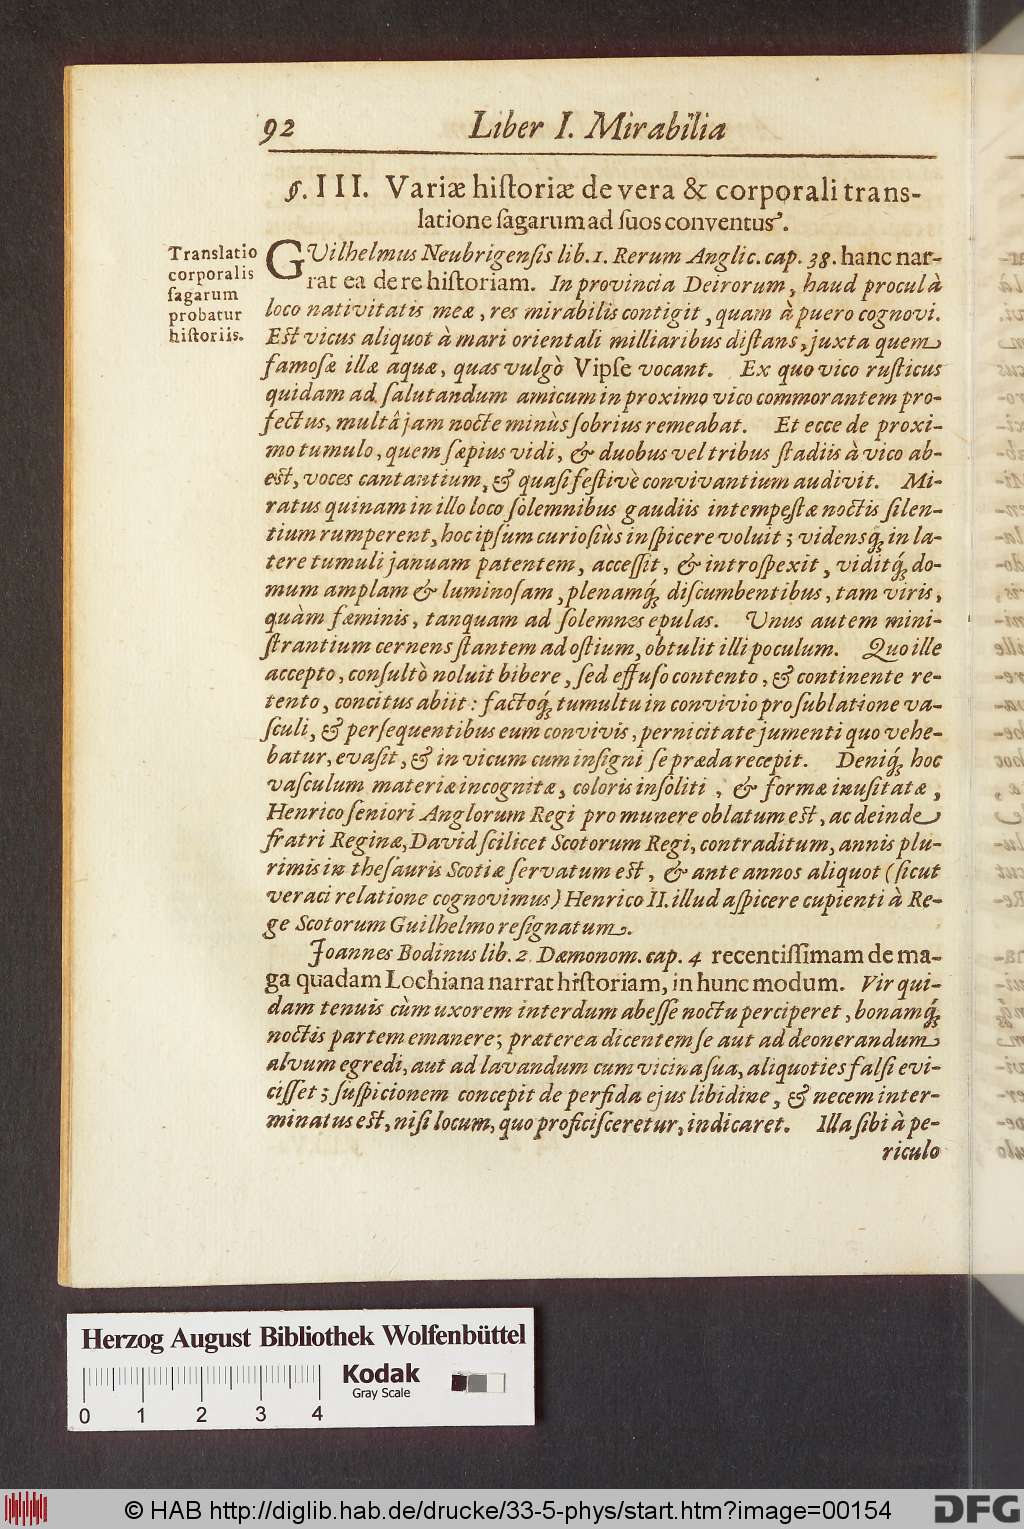 92
Liber I. Mirabilia
§. III. Variæ hiſtoriæ de vera & corporali trans-
latione ſagarum ad ſuos conventus.
Translatio
corporalis
ſagarum
probatur
hiſtoriis.
GVilhelmus Neubrigenſis lib. 1. Rerum Anglic. cap. 38. hanc nar-
rat ea de re hiſtoriam. In provincia Deirorum, haud procul à
loco nativitatis meæ, res mirabilis contigit, quam à puero cognovi.
Eſt vicus aliquot à mari orientali milliaribus diſtans, juxta quem
famoſæ illæ aquæ, quas vulgò Vipſe vocant. Ex quo vico ruſticus
quidam ad ſalutandum amicum in proximo vico commorantem pro-
fectus, multâ jam nocte minùs ſobrius remeabat. Et ecce de proxi-
mo tumulo, quem ſæpius vidi, & duobus vel tribus ſtadiis à vico ab-
eſt, voces cantantium, & quaſi feſtivè convivantium audivit. Mi-
ratus quinam in illo loco ſolemnibus gaudiis intempeſtæ noctis ſilen-
tium rumperent, hoc ipſum curioſiùs inſpicere voluit; vidensq́; in la-
tere tumuli januam patentem, acceſſit, & introſpexit, viditq́; do-
mum amplam & luminoſam, plenamq́; diſcumbentibus, tam viris,
quàm fæminis, tanquam ad ſolemnes epulas. Unus autem mini-
ſtrantium cernens ſtantem ad oſtium, obtulit illi poculum. Quo ille
accepto, conſultò noluit bibere, ſed effuſo contento, & continente re-
tento, concitus abiit: factoq́; tumultu in convivio pro ſublatione va-
ſculi, & perſequentibus eum convivis, pernicitate jumenti quo vehe-
batur, evaſit, & in vicum cum inſigni ſe præda recepit. Deniq́; hoc
vaſculum materiæ incognitæ, coloris inſoliti, & formæ inuſitatæ,
Henrico ſeniori Anglorum Regi pro munere oblatum eſt, ac deinde
fratri Reginæ, David ſcilicet Scotorum Regi, contraditum, annis plu-
rimis in theſauris Scotiæ ſervatum eſt, & ante annos aliquot (ſicut
veraci relatione cognovimus) Henrico II. illud aſpicere cupienti à Re-
ge Scotorum Guilhelmo reſignatum.
Joannes Bodinus lib. 2 Dæmonom. cap. 4 recentiſſimam de ma-
ga quadam Lochiana narrat hiſtoriam, in hunc modum. Vir qui-
dam tenuis cùm uxorem interdum abeſſe noctu perciperet, bonamq́;
noctis partem emanere; præterea dicentem ſe aut ad deonerandum
alvum egredi, aut ad lavandum cum vicina ſua, aliquoties falſi evi-
ciſſet; ſuſpicionem concepit de perfida ejus libidine, & necem inter-
minatus eſt, niſi locum, quo proficiſceretur, indicaret. Illa ſibi à pe-
riculo
Herzog August Bibliothek Wolfenbüttel
Kodak
Gray Scale
0 1 2 3 4
© HAB http://diglib.hab.de/drucke/33-5-phys/start.htm?image=00154
DFG